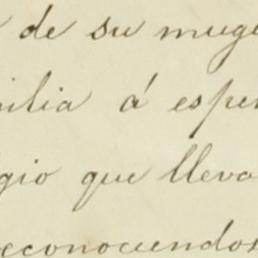 de su muge
ilia á espe
gio que lleva
econociendos